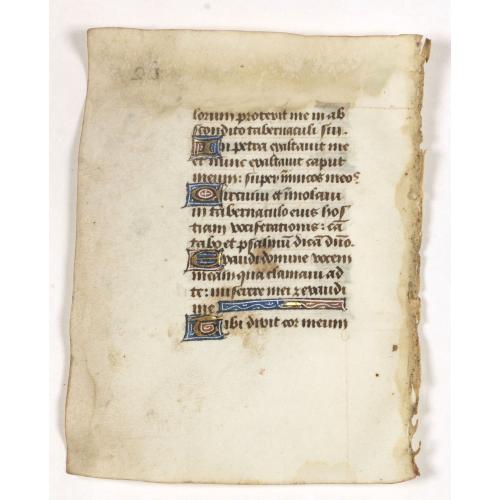 lorum protexit me in ab
scondito tabernaculi sui.
In petra exaltauit me
et nunc exaltauit caput
meum: super inimicos meos
Circuiui et imolaui
in tabernaculo eius hos
tiam vociferationis: cā
tabo et psalmū dicā dn̄o.
Exaudi domine vocem
meam qua clamaui ad
te: miserere mei et exaudi
me
Tibi dixit cor meum